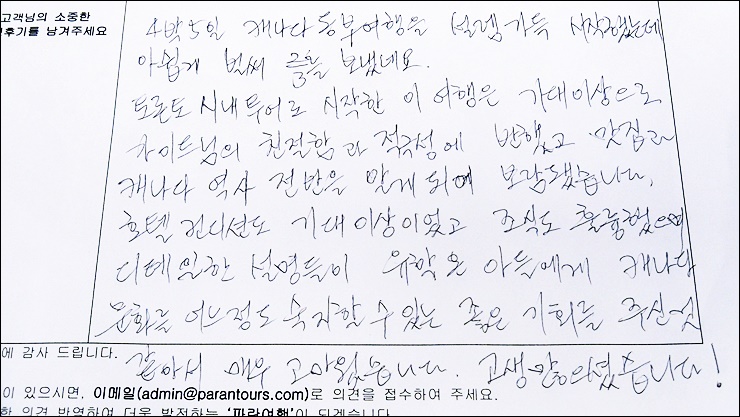 고객님의 소중한
후기를 남겨주세요
4박5일 캐나다 동부여행을 설렘 가득 시작했는데
아쉽게 벌써 끝을 보냈네요.
토론토 시내 투어로 시작한 이 여행은 기대이상으로
가이드님의 친절함과 적극성에 반했고 맛집과
캐나다 역사 전반을 알게 되어 보람됐습니다.
호텔 컨디션도 기대이상이었고 조식도 훌륭했으며
디테일한 설명들이 유학 온 아들에게 캐나다
문화를 어느정도 숙지할 수 있는 좋은 기회를 주신것
같아서 매우 고마웠습니다. 고생많으셨습니다!
에 감사 드립니다.
이 있으시면, 이메일(admin@parantours.com)로 의견을 접수하여 주세요.
한 의견 반영하여 더욱 발전하는 '파란여행'이 되겠습니다